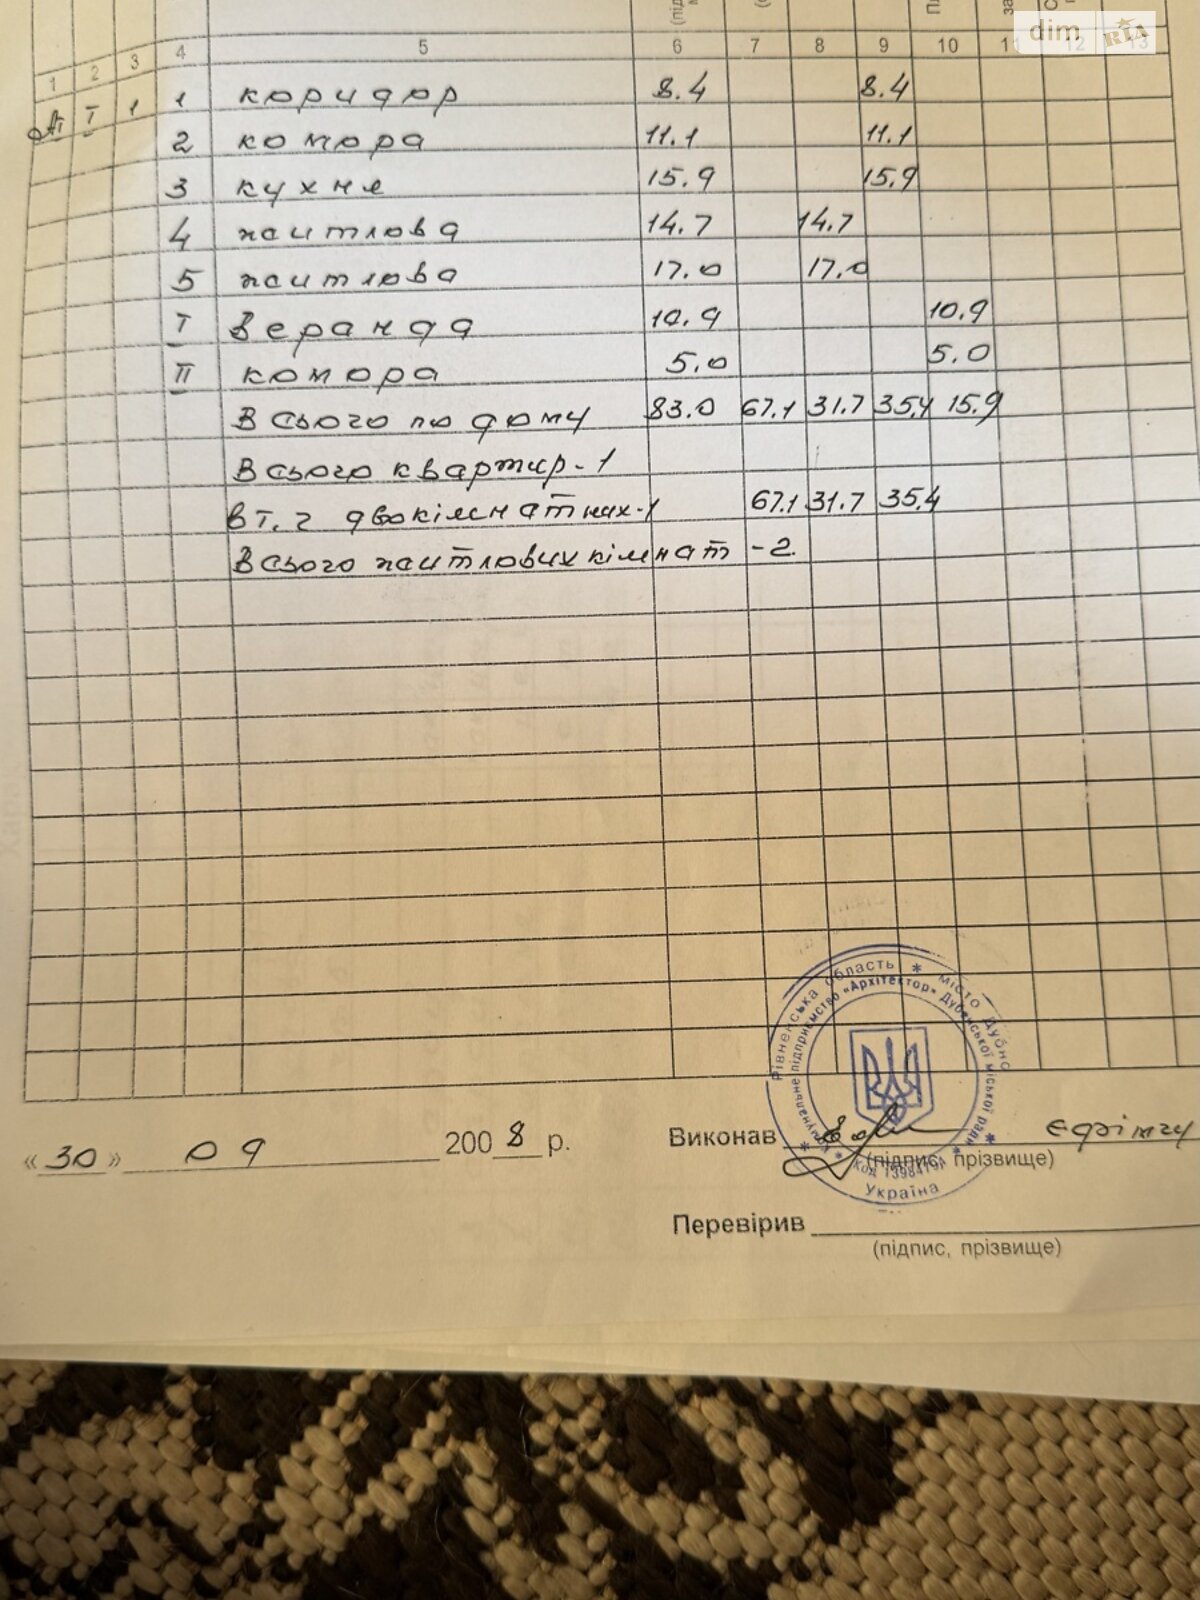 dim RIA
1 2 3 4 5 6 7 8 9 10 11 12 13
І 1 1 коридор 8.4 8.4
2 комора 11.1 11.1
3 кухня 15.9 15.9
4 житлова 14.7 14.7
5 житлова 17.0 17.0
І веранда 10.9 10.9
ІІ комора 5.0 5.0
Всього по дому 83.0 67.1 31.7 35.4 15.9
Всього квартир - 1
в т. ч двокімнатних - 1 67.1 31.7 35.4
Всього житлових кімнат - 2.
Рівненська область * місто Дубно
Комунальне підприємство «Архітектор» Дубенської міської ради
Україна
«30» 09 2008 р.
Виконав
(підпис, прізвище)
Перевірив
(підпис, прізвище)